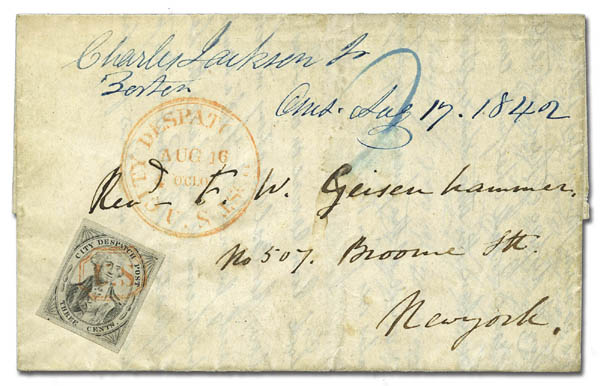 Charles Jackson Jr
Boston
Ans. Aug 17. 1842
2
CITY DESPATCH POST
AUG 16
4 OCLO
U.S.
Revd F. W. Geisenhammer.
No 507. Broome Str.
New york.
CITY DESPATCH POST
THREE CENTS.